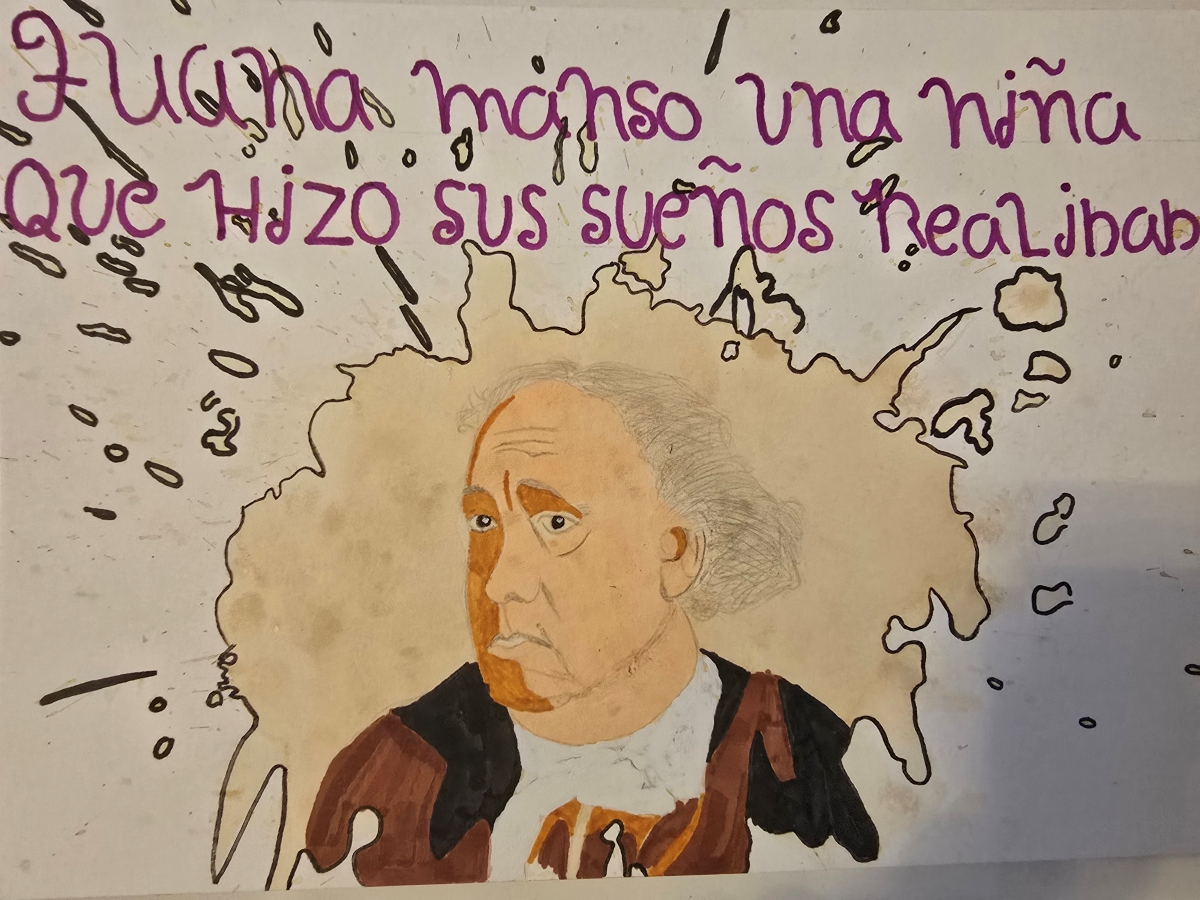 Juana manso una niña
Que Hizo sus sueños Realidad